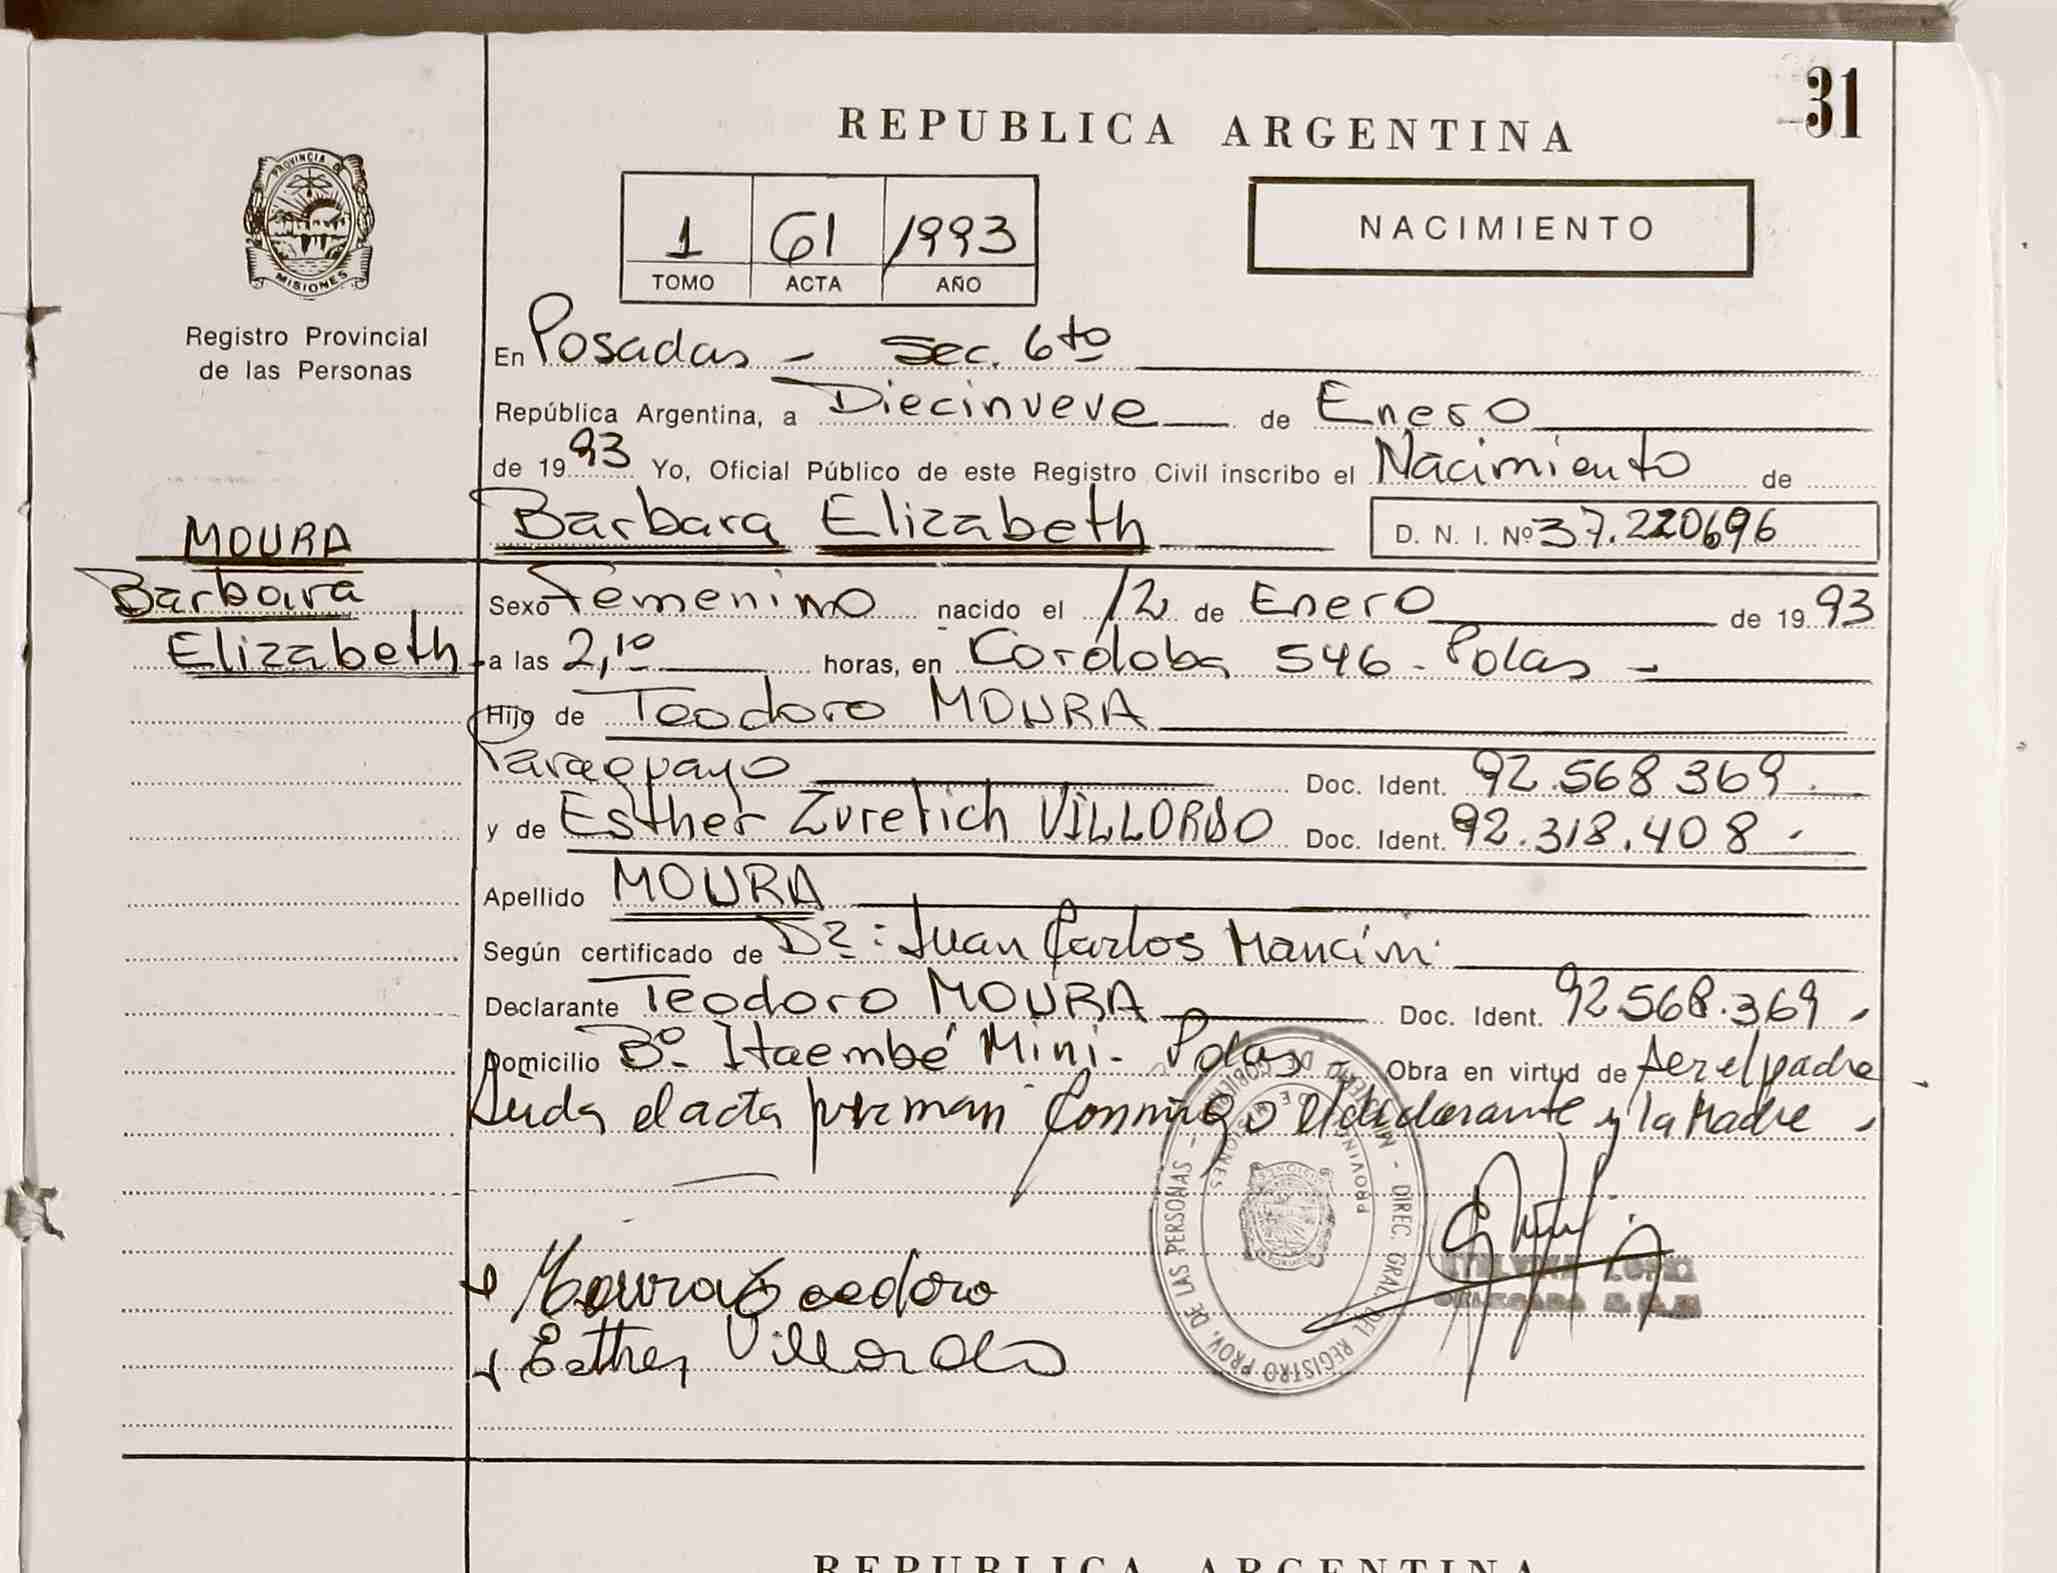 31
REPUBLICA ARGENTINA
NACIMIENTO
1 61 1993
TOMO ACTA AÑO
PROVINCIA DE MISIONES
Registro Provincial
de las Personas
En Posadas - Sec. 6to
República Argentina, a Diecinueve de Enero
de 1993 Yo, Oficial Público de este Registro Civil inscribo el Nacimiento de
Barbara Elizabeth D. N. I. Nº 37.220696
MOURA
Barbara
Elizabeth
Sexo Femenino nacido el 12 de Enero de 1993
a las 2,10 horas, en Cordoba 546 - Pdas -
Hijo de Teodoro MOURA
Paraguayo Doc. Ident. 92.568369.
y de Esther Zuretich VILLORDO Doc. Ident. 92.318.408.
Apellido MOURA
Según certificado de Dr: Juan Carlos Mancini
Declarante Teodoro MOURA Doc. Ident. 92568.369
Domicilio Bº Itaembé Mini - Pdas Obra en virtud de ser el padre
Leida el acta firman conmigo el declarante y la Madre
MINISTERIO DE GOBIERNO - DIREC. GRAL. DEL REGISTRO PROV. DE LAS PERSONAS -
PROVINCIA DE MISIONES
Moura Teodoro
Esther Villordo
REPUBLICA ARGENTINA